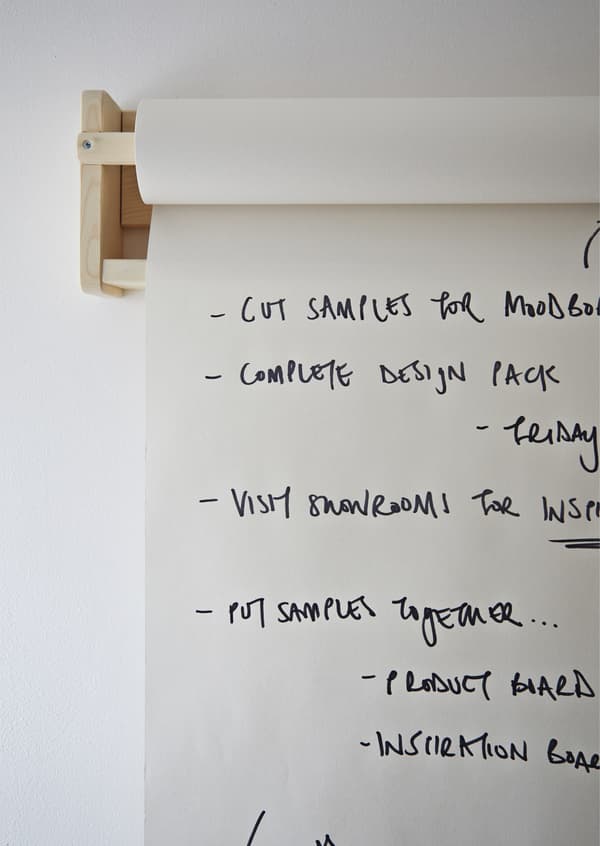 - CUT SAMPLES FOR MOODBO
- COMPLETE DESIGN PACK
- FRIDAY
- VISIT SHOWROOMS FOR INSPI
- PUT SAMPLES TOGETHER...
- PRODUCT BOARD
- INSPIRATION BOAR